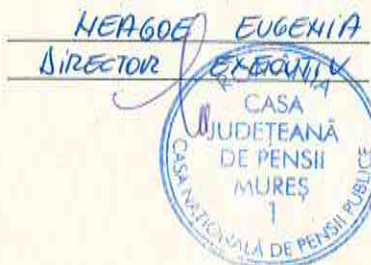 NEAGOE EUGENIA
DIRECTOR EXECUTIV
ROMÂNIA
CASA
JUDEȚEANĂ
DE PENSII
MUREȘ
1
CASA NAȚIONALĂ DE PENSII PUBLICE